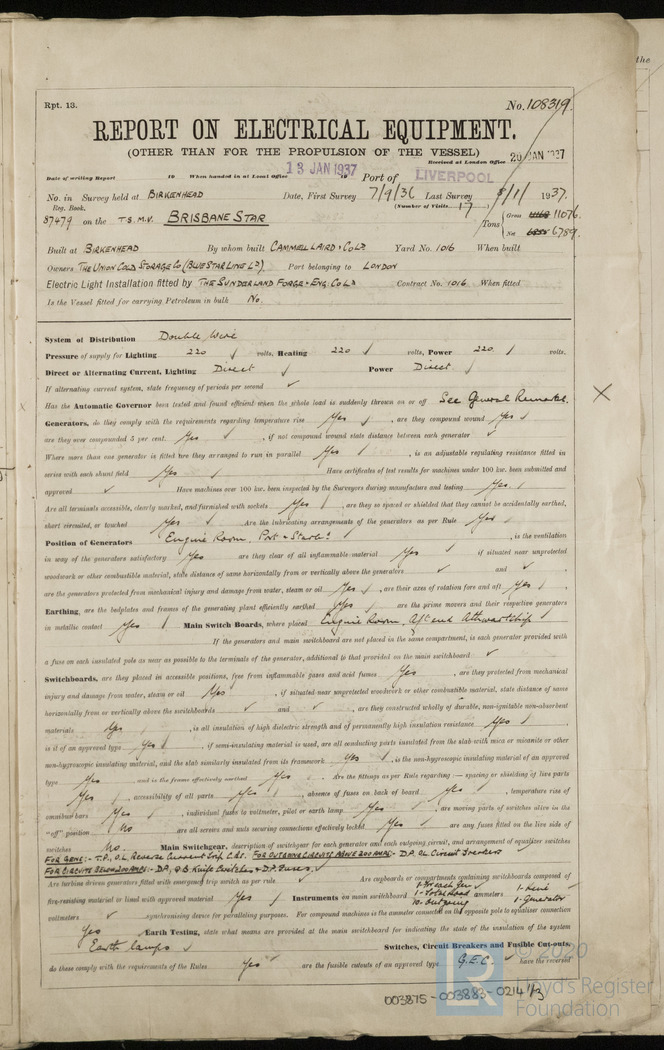 the
Rpt. 13.
No. 108319.
REPORT ON ELECTRICAL EQUIPMENT.
(OTHER THAN FOR THE PROPULSION OF THE VESSEL)
Received at London Office 20 JAN 1937
Date of writing Report 19 When handed in at Local Office 13 JAN 1937 19 Port of LIVERPOOL
No. in Survey held at BIRKENHEAD Date, First Survey 7/9/36 Last Survey 5/1/ 1937.
Reg. Book. (Number of Visits 17)
87479 on the T.S.M.V. BRISBANE STAR Tons { Gross 11076. Net 6789.
Built at BIRKENHEAD By whom built CAMMELL LAIRD & Co Ld Yard No. 1016 When built
Owners THE UNION COLD STORAGE Co (BLUE STAR LINE Ld) Port belonging to LONDON
Electric Light Installation fitted by THE SUNDERLAND FORGE & ENG: Co Ld Contract No. 1016 When fitted
Is the Vessel fitted for carrying Petroleum in bulk No.
System of Distribution Double Wire
Pressure of supply for Lighting 220 volts, Heating 220 volts, Power 220 volts.
Direct or Alternating Current, Lighting Direct Power Direct
If alternating current system, state frequency of periods per second ✓
Has the Automatic Governor been tested and found efficient when the whole load is suddenly thrown on or off See General Remarks. X
Generators, do they comply with the requirements regarding temperature rise Yes , are they compound wound Yes
are they over compounded 5 per cent. Yes , if not compound wound state distance between each generator ✓
Where more than one generator is fitted are they arranged to run in parallel Yes , is an adjustable regulating resistance fitted in
series with each shunt field Yes Have certificates of test results for machines under 100 kw. been submitted and
approved ✓ Have machines over 100 kw. been inspected by the Surveyors during manufacture and testing Yes
Are all terminals accessible, clearly marked, and furnished with sockets Yes , are they so spaced or shielded that they cannot be accidentally earthed,
short circuited, or touched Yes Are the lubricating arrangements of the generators as per Rule Yes
Position of Generators Engine Room, Port & Starbd , is the ventilation
in way of the generators satisfactory Yes are they clear of all inflammable material Yes if situated near unprotected
woodwork or other combustible material, state distance of same horizontally from or vertically above the generators ✓ and ✓
are the generators protected from mechanical injury and damage from water, steam or oil Yes , are their axes of rotation fore and aft Yes
Earthing, are the bedplates and frames of the generating plant efficiently earthed Yes are the prime movers and their respective generators
in metallic contact Yes Main Switch Boards, where placed Engine Room, Aft end Athwartships
If the generators and main switchboard are not placed in the same compartment, is each generator provided with
a fuse on each insulated pole as near as possible to the terminals of the generator, additional to that provided on the main switchboard ✓
Switchboards, are they placed in accessible positions, free from inflammable gases and acid fumes Yes , are they protected from mechanical
injury and damage from water, steam or oil Yes , if situated near unprotected woodwork or other combustible material, state distance of same
horizontally from or vertically above the switchboards ✓ and ✓ , are they constructed wholly of durable, non-ignitable non-absorbent
materials Yes , is all insulation of high dielectric strength and of permanently high insulation resistance Yes
is it of an approved type Yes , if semi-insulating material is used, are all conducting parts insulated from the slab with mica or micanite or other
non-hygroscopic insulating material, and the slab similarly insulated from its framework Yes , is the non-hygroscopic insulating material of an approved
type Yes and is the frame effectively earthed Yes Are the fittings as per Rule regarding:— spacing or shielding of live parts
Yes , accessibility of all parts Yes , absence of fuses on back of board Yes , temperature rise of
omnibus bars Yes , individual fuses to voltmeter, pilot or earth lamp Yes , are moving parts of switches alive in the
"off" position No are all screws and nuts securing connections effectively locked Yes are any fuses fitted on the live side of
switches No. Main Switchgear, description of switchgear for each generator and each outgoing circuit, and arrangement of equalizer switches
FOR GENS:- T.P., O.L. Reverse Current Trip C.Bs. FOR OUTGOING CIRCUITS ABOVE 200 AMPS:- D.P. O.L. Circuit Breakers
FOR CIRCUITS BELOW 200 AMPS:- D.P., Q.B. Knife Switches & D.P. Fuses. Are cupboards or compartments containing switchboards composed of
Are turbine driven generators fitted with emergency trip switch as per rule ✓
fire-resisting material or lined with approved material Yes Instruments on main switchboard 1-for each Gen 1-Total Load 10-Outgoing ammeters 1-Line 1-Generator
voltmeters ✓ synchronising device for paralleling purposes. For compound machines is the ammeter connected on the opposite pole to equaliser connection
Yes Earth Testing, state what means are provided at the main switchboard for indicating the state of the insulation of the system
Earth lamps Switches, Circuit Breakers and Fusible Cut-outs,
do these comply with the requirements of the Rules Yes are the fusible cutouts of an approved type G.E.C. have the reversed
© 2020
Lloyd's Register
Foundation
003875-003883-0214 1/3